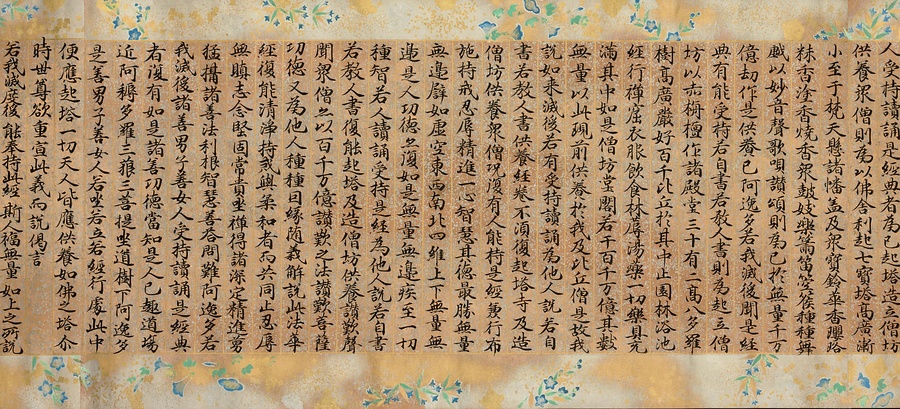 人受持讀誦是經典者為已起塔造立僧坊
供養衆僧則為以佛舍利起七寶塔高廣漸
小至于梵天懸諸幡蓋及衆寶鈴華香瓔珞
秣香塗香燒香衆鼓妓樂簫笛箜篌種種舞
戲以妙音聲歌唄讚頌則為已於無量千万
億劫作是供養已阿逸多若我滅後聞是經
典有能受持若自書若教人書則為起立僧
坊以赤栴檀作諸殿堂三十有二高八多羅
樹高廣嚴好百千比丘於其中止園林浴池
經行禪窟衣服飲食牀蓐湯藥一切樂具充
滿其中如是僧坊堂閣若干百千万億其數
無量以此現前供養於我及比丘僧是故我
說如來滅後若有受持讀誦為他人說若自
書若教人書供養經卷不須復起塔寺及造
僧坊供養衆僧況復有人能持是經兼行布
施持戒忍辱精進一心智慧其德最勝無量
無邊譬如虛空東西南北四維上下無量無
邊是人功德亦復如是無量無邊疾至一切
種智若人讀誦受持是經為他人說若自書
若教人書復能起塔及造僧坊供養讚歎聲
聞衆僧亦以百千万億讚歎之法讚歎菩薩
功德又為他人種種因緣隨義解說此法華
經復能清淨持戒與柔和者而共同止忍辱
無瞋志念堅固常貴坐禪得諸深定精進勇
猛攝諸善法利根智慧善答問難阿逸多若
我滅後諸善男子善女人受持讀誦是經典
者復有如是諸善功德當知是人已趣道場
近阿耨多羅三藐三菩提坐道樹下阿逸多
是善男子善女人若坐若立若經行處此中
便應起塔一切天人皆應供養如佛之塔尒
時世尊欲重宣此義而說偈言
若我滅度後 能奉持此經 斯人福無量 如上之所說